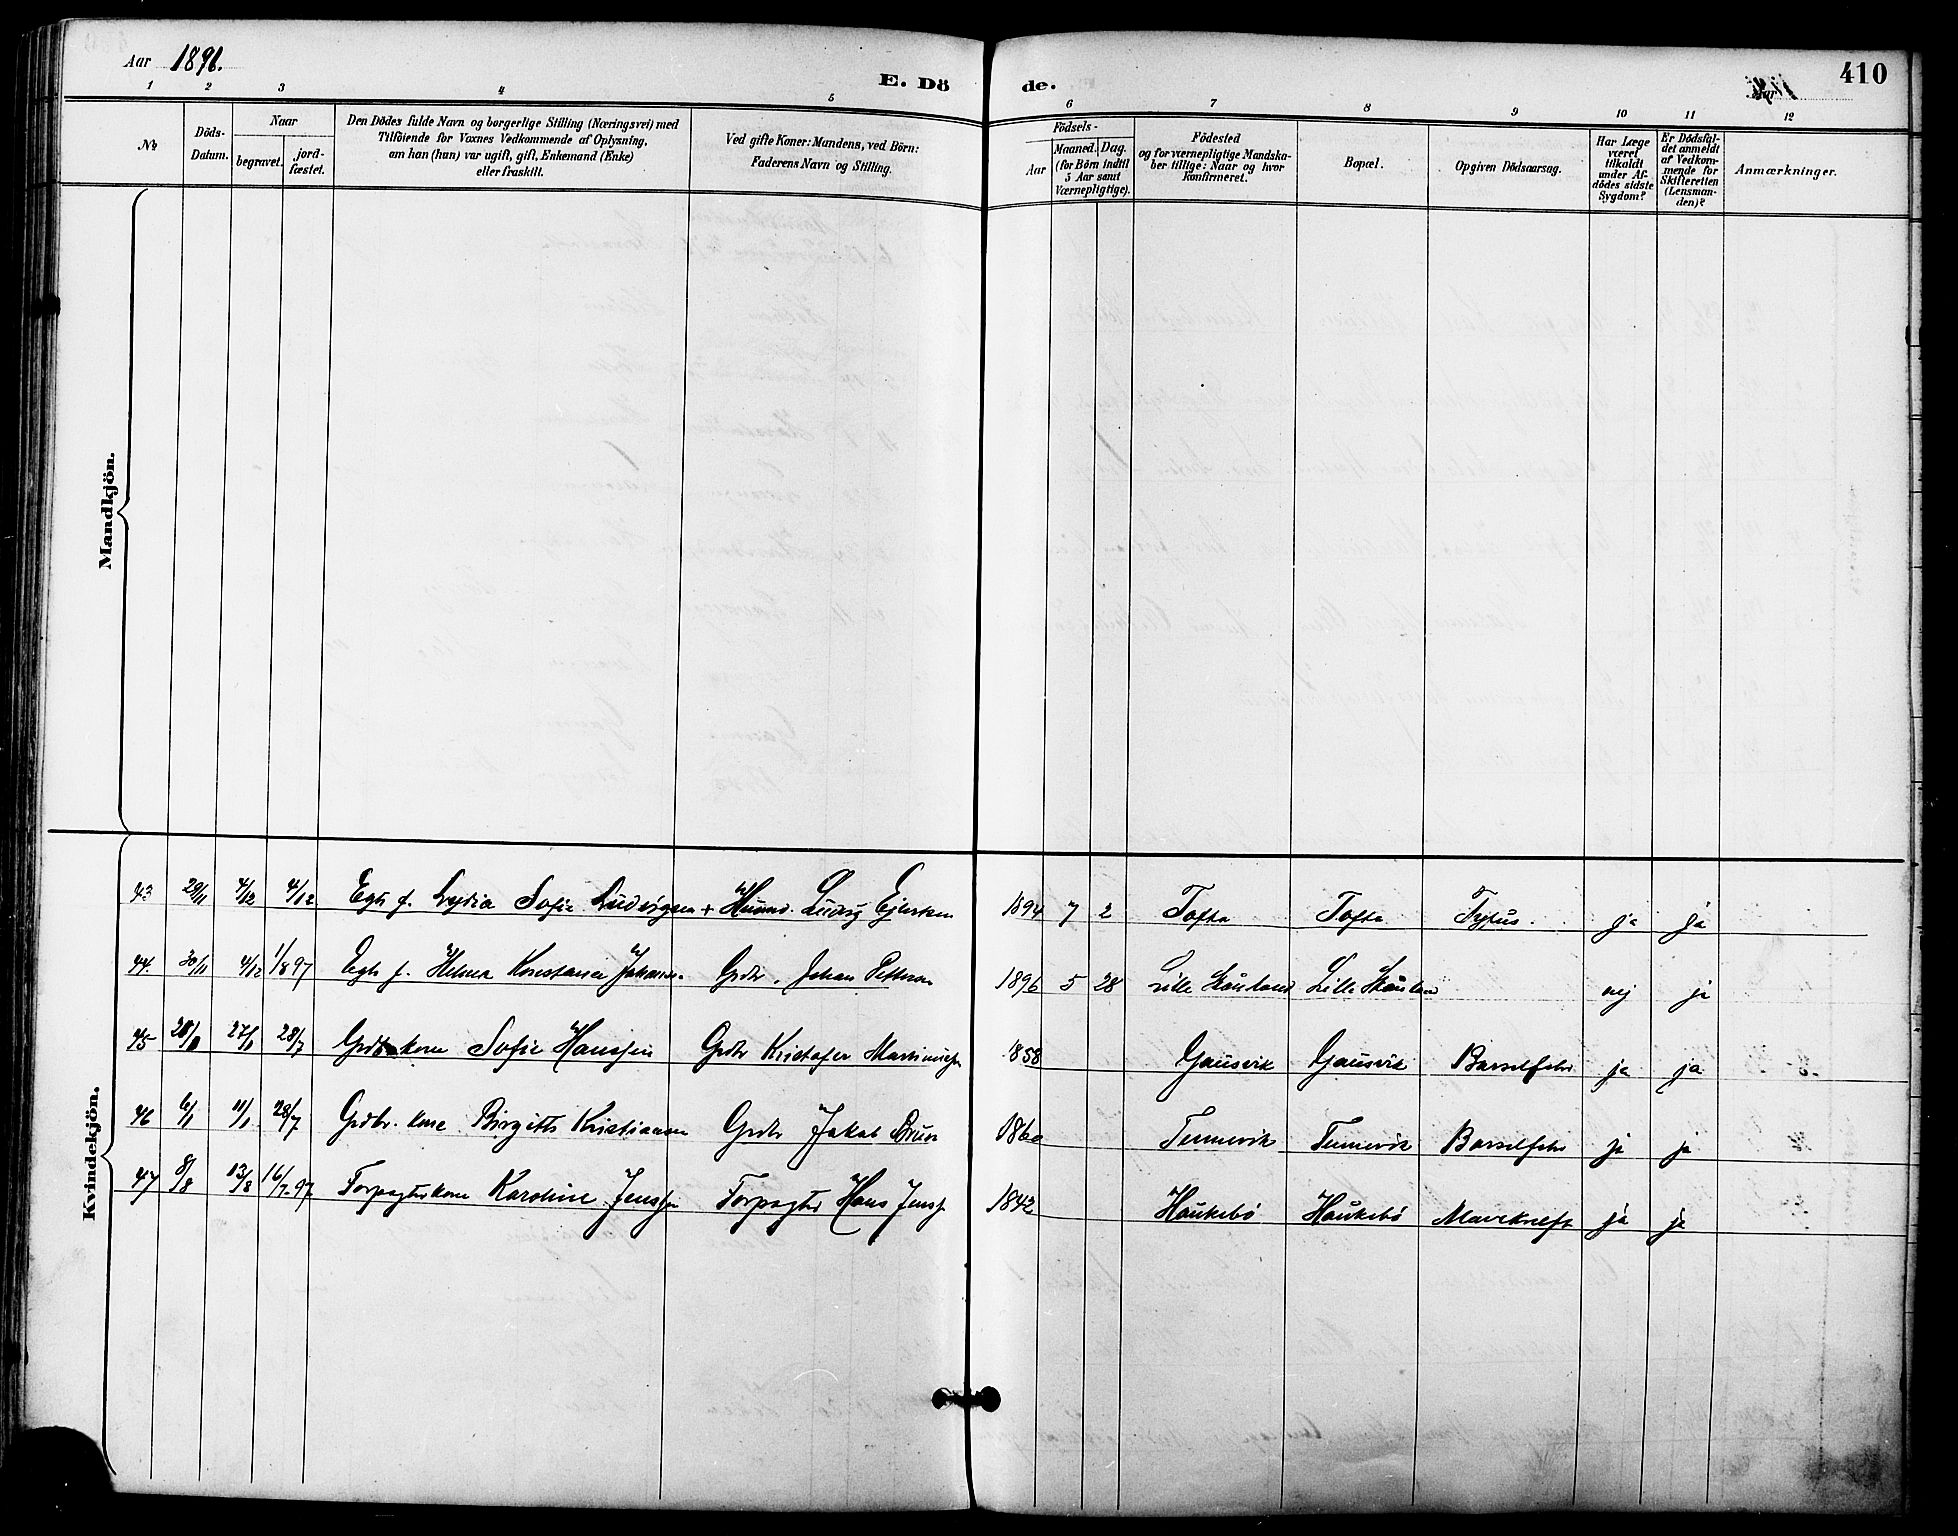 Aar 1896.
E. Döde.
410
1 2 3 4 5 6 7 8 9 10 11 12
№
Döds-Datum.
Naar
begravet.
jord-fæstet.
Den Dödes fulde Navn og borgerlige Stilling (Næringsvei) med
Tilföiende for Voxnes Vedkommende af Oplysning,
om han (hun) var ugift, gift, Enkemand (Enke)
eller fraskilt.
Ved gifte Koner: Mandens, ved Börn:
Faderens Navn og Stilling.
Födsels-
Aar
Maaned.
Dag.
(for Börn indtil
5 Aar samt
Værnepligtige).
Födested
og for værnepligtige Mandska-
ber tillige: Naar og hvor
Konfirmeret.
Bopæl.
Opgiven Dödsaarsag.
Har Læge
været
tilkaldt
under Af-
dödes sidste
Sygdom?
Er Dödsfal-
det anmeldt
af Vedkom-
mende for
Skifteretten
(Lensman-
den)?
Anmærkninger.
Mandkjön.
Kvindekjön.
43 29/11 4/12 4/12 Egte f. Lydia Sofie Ludvigsen + Husmd. Ludvig Ejlertsen 1894 7 2 Tofta Tofta Tyfus. ja ja
44. 30/11 4/12 1/8 97 Egte f. Helma Konstanse Johans. Grdbr. Johan Petterson 1896 5 28 Lille Skånland Lille Skånland nej ja
45 27/1 28/7 Grdbr kone Sofie Hanssen Grdbr Kristofer Martinussen 1858 Gausvik Gausvik Barselfeber ja ja
46 6/1 11/1 28/7 Grdbr. kone Birgitte Kristiansen Grdbr Jakob Bruun 1860 Tennevik Tennevik Barselfeber ja ja
47 8/8 13/8 16/7-97 Forpagterkone Karoline Jenssen Forpagter Hans Jenss. 1842 Haukebö Haukebö Mavekreft ja ja